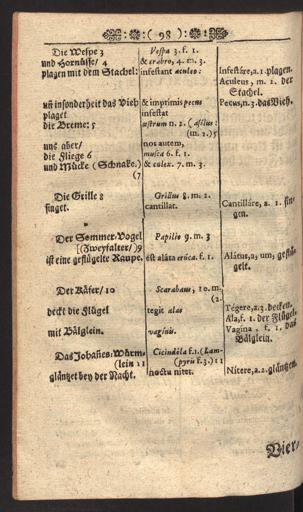 ( 98 )
Die Wespe 3 Vespa 3. f. 1.
und Hornüsse/ 4 & crabro, 4. m. 3.
plagen mit dem Stachel: infestant aculeo: Infestáre, a. 1. plagen.
Aculeus, m. 2. der
Stachel.
uñ insonderheit das Vieh & imprimis pecus Pecus, n. 3. das Vieh.
plaget infestat
die Breme: 5 œstrum n. 2. (asilus:
(m. 2.) 5
uns aber/ nos autem,
die Fliege 6 musca 6. f. 1.
und Mücke (Schnake.) & culex. 7. m. 3.
(7
Die Grille 8 Grillus 8. m. 2.
singet. cantillat. Cantilláre, a. 1. sin-
gen.
Der Sommer-Vogel Papilio 9. m. 3
[(Zweyfalter/)9
ist eine geflügelte Raupe. est aláta erúca. f. 1. Alátus, a, um, geflü-
gelt.
Der Käfer/ 10 Scarabæus, 10. m.
(2.
deckt die Flügel tegit alas Tégere, a. 3. decken.
Ala, f. 1. der Flügel.
mit Bälglein. vagínis. Vagina, f. 1. das
Bälglein.
Das Johañes-Würm- Cicindéla f. 1. (Lam-
(lein 11 pyris f. 3.) 11
gläntzet bey der Nacht. noctu nitet. Nitere, a. 2. gläntzen.
Vier-